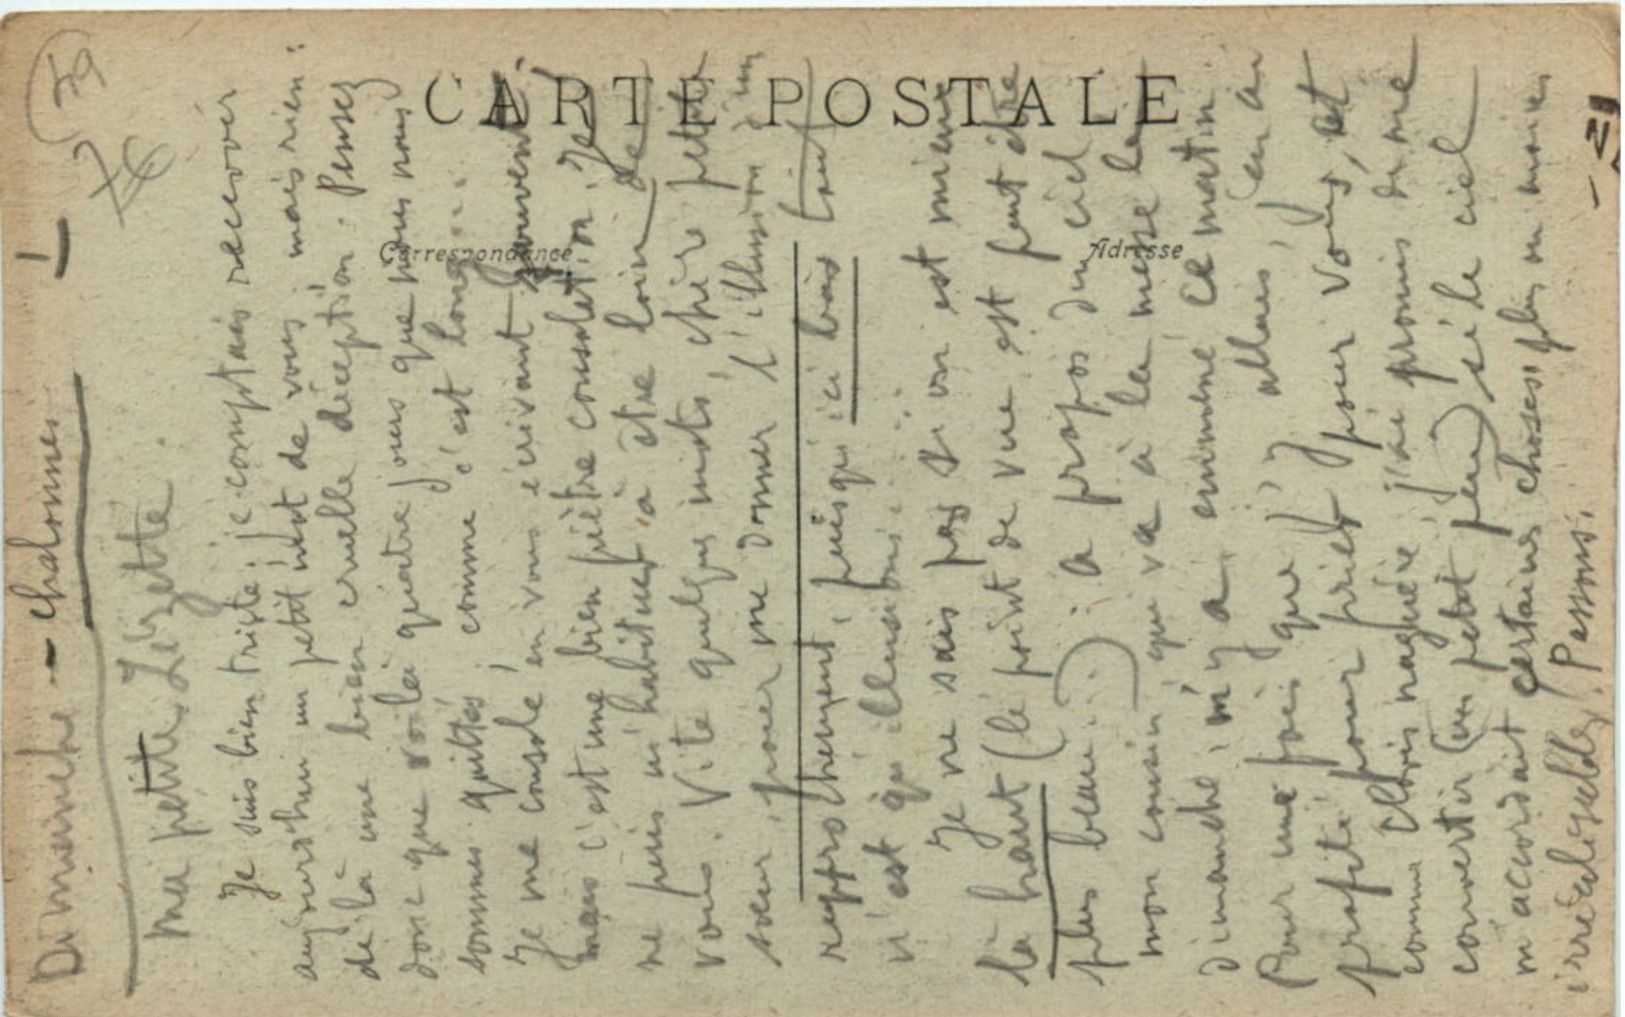 CARTE POSTALE
Correspondance
Adresse
Dimanche – Chalonnes I
Ma petite Lézette.
Je suis bien triste ; je comptais recevoir
aujourd'hui un petit mot de vous ; mais rien :
de là une bien cruelle déception. Pensez
donc que voilà quatre jours que nous nous
sommes quittés, comme c'est long...
Je me console en vous écrivant souvent,
mais c'est une bien piètre consolation. Je
ne puis m'habituer à être loin de
vous. Vite quelques mots, chère petite
sœur, pour me donner l'illusion d'un
rapprochement, puisqu'ici bas tout
n'est qu'illusion :
Je ne sais pas si on est mieux
là haut (le point de vue est peut être
plus beau...) : à propos du ciel
mon cousin, qui va à la messe le
dimanche, m'y a emmené ce matin.
Pour une fois que j'y allais, j'en ai
profité pour prier pour vous, et
comme Clovis naguère, j'ai promis de me
convertir (un petit peu) si le ciel
m'accordait certaines choses, plus ou moins
irréalisables. Passons.